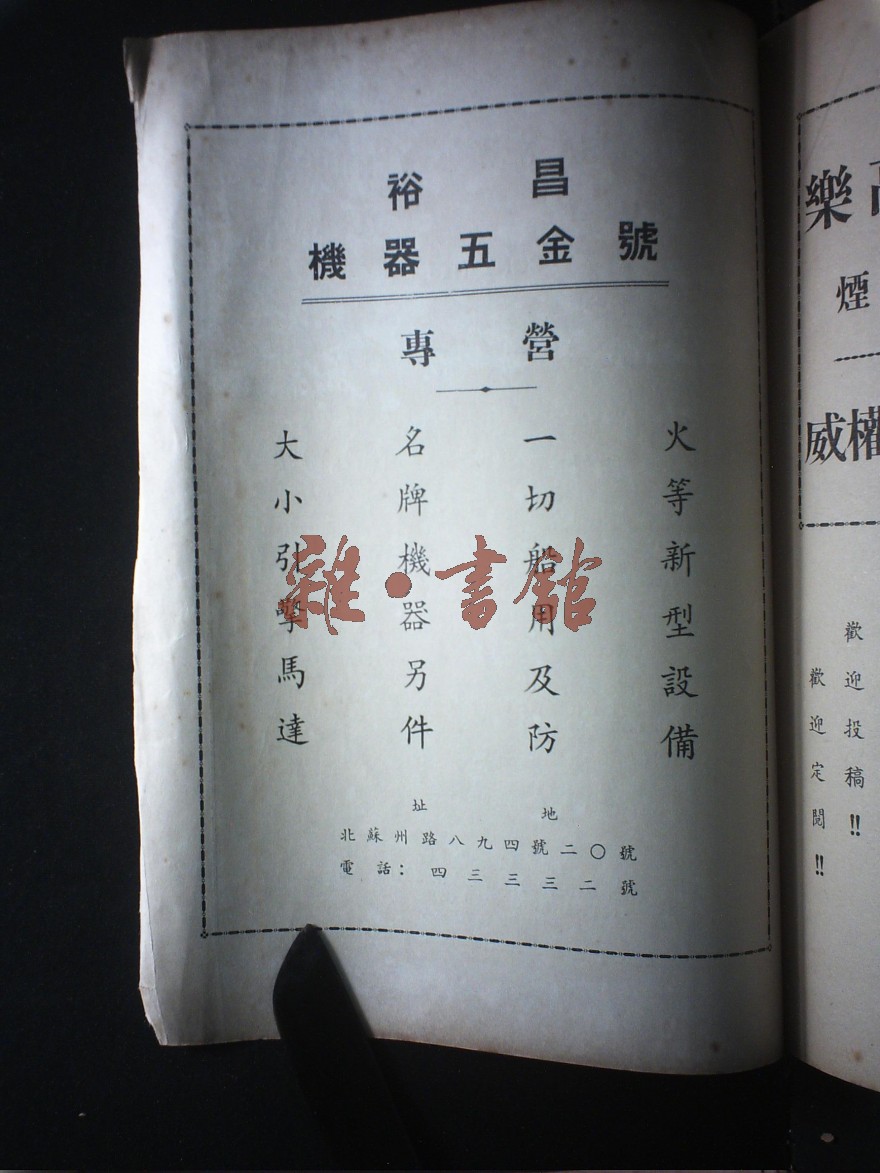 裕昌
機器五金號
專營
大小引擎馬達
名牌機器另件
一切船用及防
火等新型設備
址地
北蘇州路八九四號二〇號
電話：四三三三二號
雜·書館
樂
煙
威權
歡迎投稿!!
歡迎定閱!!